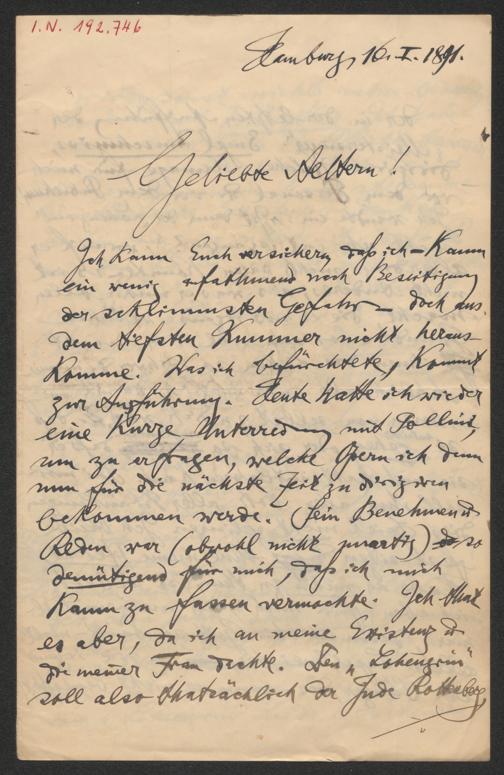 I.N. 192.746
Hamburg, 16. I. 1891.
Geliebte Aeltern!
Ich kann Euch versichern, daß ich – kaum
ein wenig aufathmend nach Beseitigung
der schlimmsten Gefahr – doch aus
dem tiefsten Kummer nicht heraus-
komme. Was ich befürchtete, kommt
zur Ausführung. Heute hatte ich wieder
eine kurze Unterredung mit Pollini,
um zu erfragen, welche Opern ich denn
nun für die nächste Zeit zu dirigiren
bekommen werde. Sein Benehmen u
Reden war (obwohl nicht unartig) so
demütigend für mich, daß ich mich
kaum zu fassen vermochte. Ich that
es aber, da ich an meine Existenz u
die meiner Frau dachte. Den „Lohengrin"
soll also thatsächlich der Jude Rottenberg